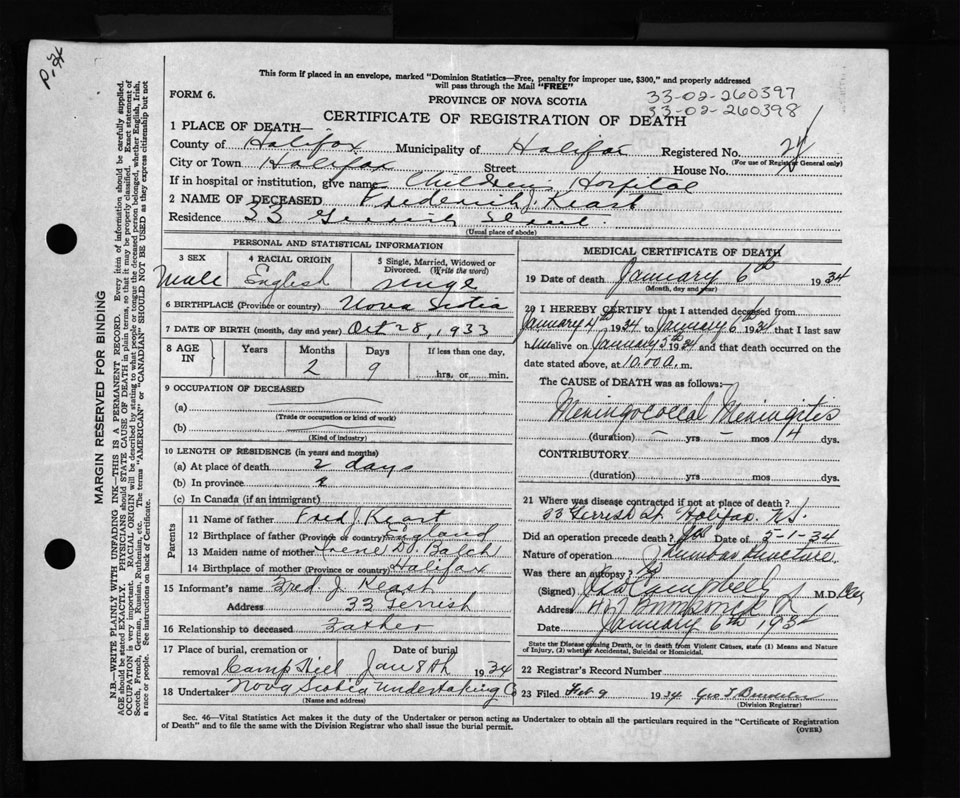 P. 34
This form if placed in an envelope, marked "Dominion Statistics—Free, penalty for improper use, $300," and properly addressed
will pass through the Mail "FREE"
FORM 6.
PROVINCE OF NOVA SCOTIA
33-02-260397
33-02-260398
CERTIFICATE OF REGISTRATION OF DEATH
1 PLACE OF DEATH—
County of Halifax Municipality of Halifax Registered No. 24
(For use of Registrar General only)
City or Town Halifax Street House No.
If in hospital or institution, give name Children's Hospital
2 NAME OF DECEASED Frederick J. Keast
Residence 33 Gerrish Street
(Usual place of abode)
PERSONAL AND STATISTICAL INFORMATION
3 SEX 4 RACIAL ORIGIN 5 Single, Married, Widowed or Divorced. (Write the word)
Male English single
6 BIRTHPLACE (Province or country) Nova Scotia
7 DATE OF BIRTH (month, day and year) Oct 28, 1933
8 AGE IN Years Months Days If less than one day,
2 9 hrs. or min.
9 OCCUPATION OF DECEASED
(a)
(Trade or occupation or kind of work)
(b)
(Kind of industry)
10 LENGTH OF RESIDENCE (in years and months)
(a) At place of death 2 days
(b) In province
(c) In Canada (if an immigrant)
Parents
11 Name of father Fred J. Keast
12 Birthplace of father (Province or country) England
13 Maiden name of mother Irene D. Balch
14 Birthplace of mother (Province or country) Halifax
15 Informant's name Fred J. Keast
Address 33 Gerrish
16 Relationship to deceased Father
17 Place of burial, cremation or removal Date of burial
Camp Hill Jan 8th 1934
18 Undertaker Nova Scotia Undertaking Co
(Name and address)
MEDICAL CERTIFICATE OF DEATH
19 Date of death January 6th 1934
(Month, day and year)
20 I HEREBY CERTIFY that I attended deceased from
January 4th 1934 to January 6th 1934 that I last saw
him alive on January 5th 1934 and that death occurred on the
date stated above, at 10.00 a. m.
The CAUSE of DEATH was as follows:
Meningococcal Meningitis
(duration) – yrs – mos 14 dys.
CONTRIBUTORY
(duration) yrs mos dys.
21 Where was disease contracted if not at place of death?
33 Gerrish St. Halifax N.S.
Did an operation precede death? Date of 5-1-34
Nature of operation Lumbar Puncture
Was there an autopsy?
(Signed) Campbell M.D.
Address
Date January 6th 1934
State the Disease causing Death, or in death from Violent Causes, state (1) Means and Nature of Injury, (2) whether Accidental, Suicidal or Homicidal.
22 Registrar's Record Number
23 Filed Feb 9 1934 Geo
(Division Registrar)
Sec. 46—Vital Statistics Act makes it the duty of the Undertaker or person acting as Undertaker to obtain all the particulars required in the "Certificate of Registration
of Death" and to file the same with the Division Registrar who shall issue the burial permit.
(OVER)
MARGIN RESERVED FOR BINDING
N.B.—WRITE PLAINLY WITH UNFADING INK—THIS IS A PERMANENT RECORD. Every item of information should be carefully supplied.
AGE should be stated EXACTLY. PHYSICIANS should STATE CAUSE OF DEATH in plain terms, so that it may be properly classified. Exact statement of
OCCUPATION is very important. RACIAL ORIGIN will be described by stating to what people or tongue the deceased person belonged, whether English, Irish,
Scotch, French, German, Russian, Ruthenian, etc. The terms "AMERICAN" or "CANADIAN" SHOULD NOT BE USED as they express citizenship but not
a race or people. See instructions on back of Certificate.